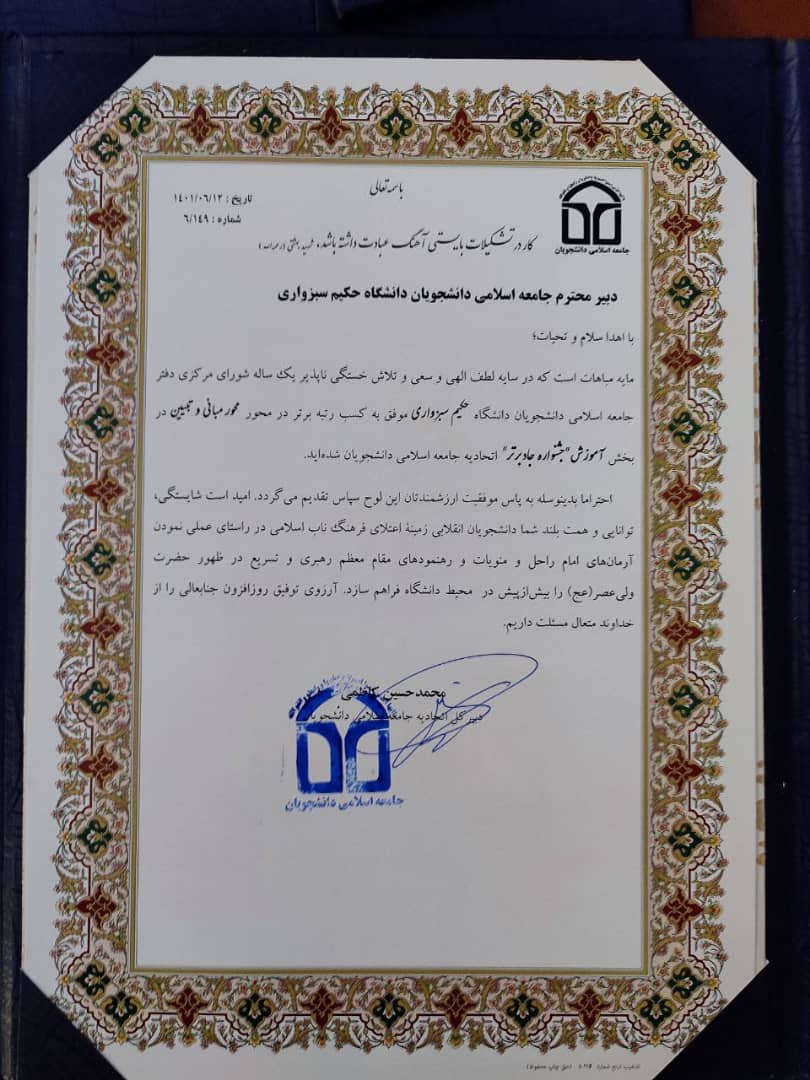 باسمه تعالی
تاریخ : ۱۴۰۱/۰۶/۱۲
شماره : ۶/۱۴۹
جامعه اسلامی دانشجویان
کار در تشکیلات بایستی آهنگ عبادت داشته باشد. شهید بهشتی (رحمه الله)
دبیر محترم جامعه اسلامی دانشجویان دانشگاه حکیم سبزواری
با اهدا سلام و تحیات؛
مایه مباهات است که در سایه لطف الهی و سعی و تلاش خستگی ناپذیر یک ساله شورای مرکزی دفتر
جامعه اسلامی دانشجویان دانشگاه حکیم سبزواری موفق به کسب رتبه برتر در محور محور مبانی و تبیین در
بخش آموزش "جشنواره جاد برتر" اتحادیه جامعه اسلامی دانشجویان شده‌اید.
احتراما بدینوسله به پاس موفقیت ارزشمندتان این لوح سپاس تقدیم می‌گردد. امید است شایستگی،
توانایی و همت بلند شما دانشجویان انقلابی زمینهٔ اعتلای فرهنگ ناب اسلامی در راستای عملی نمودن
آرمان‌های امام راحل و منویات و رهنمودهای مقام معظم رهبری و تسریع در ظهور حضرت
ولی‌عصر(عج) را بیش‌ازپیش در محیط دانشگاه فراهم سازد. آرزوی توفیق روزافزون جنابعالی را از
خداوند متعال مسئلت داریم.
محمدحسین کاظمی
دبیر کل اتحادیه جامعه اسلامی دانشجویان
جامعه اسلامی دانشجویان